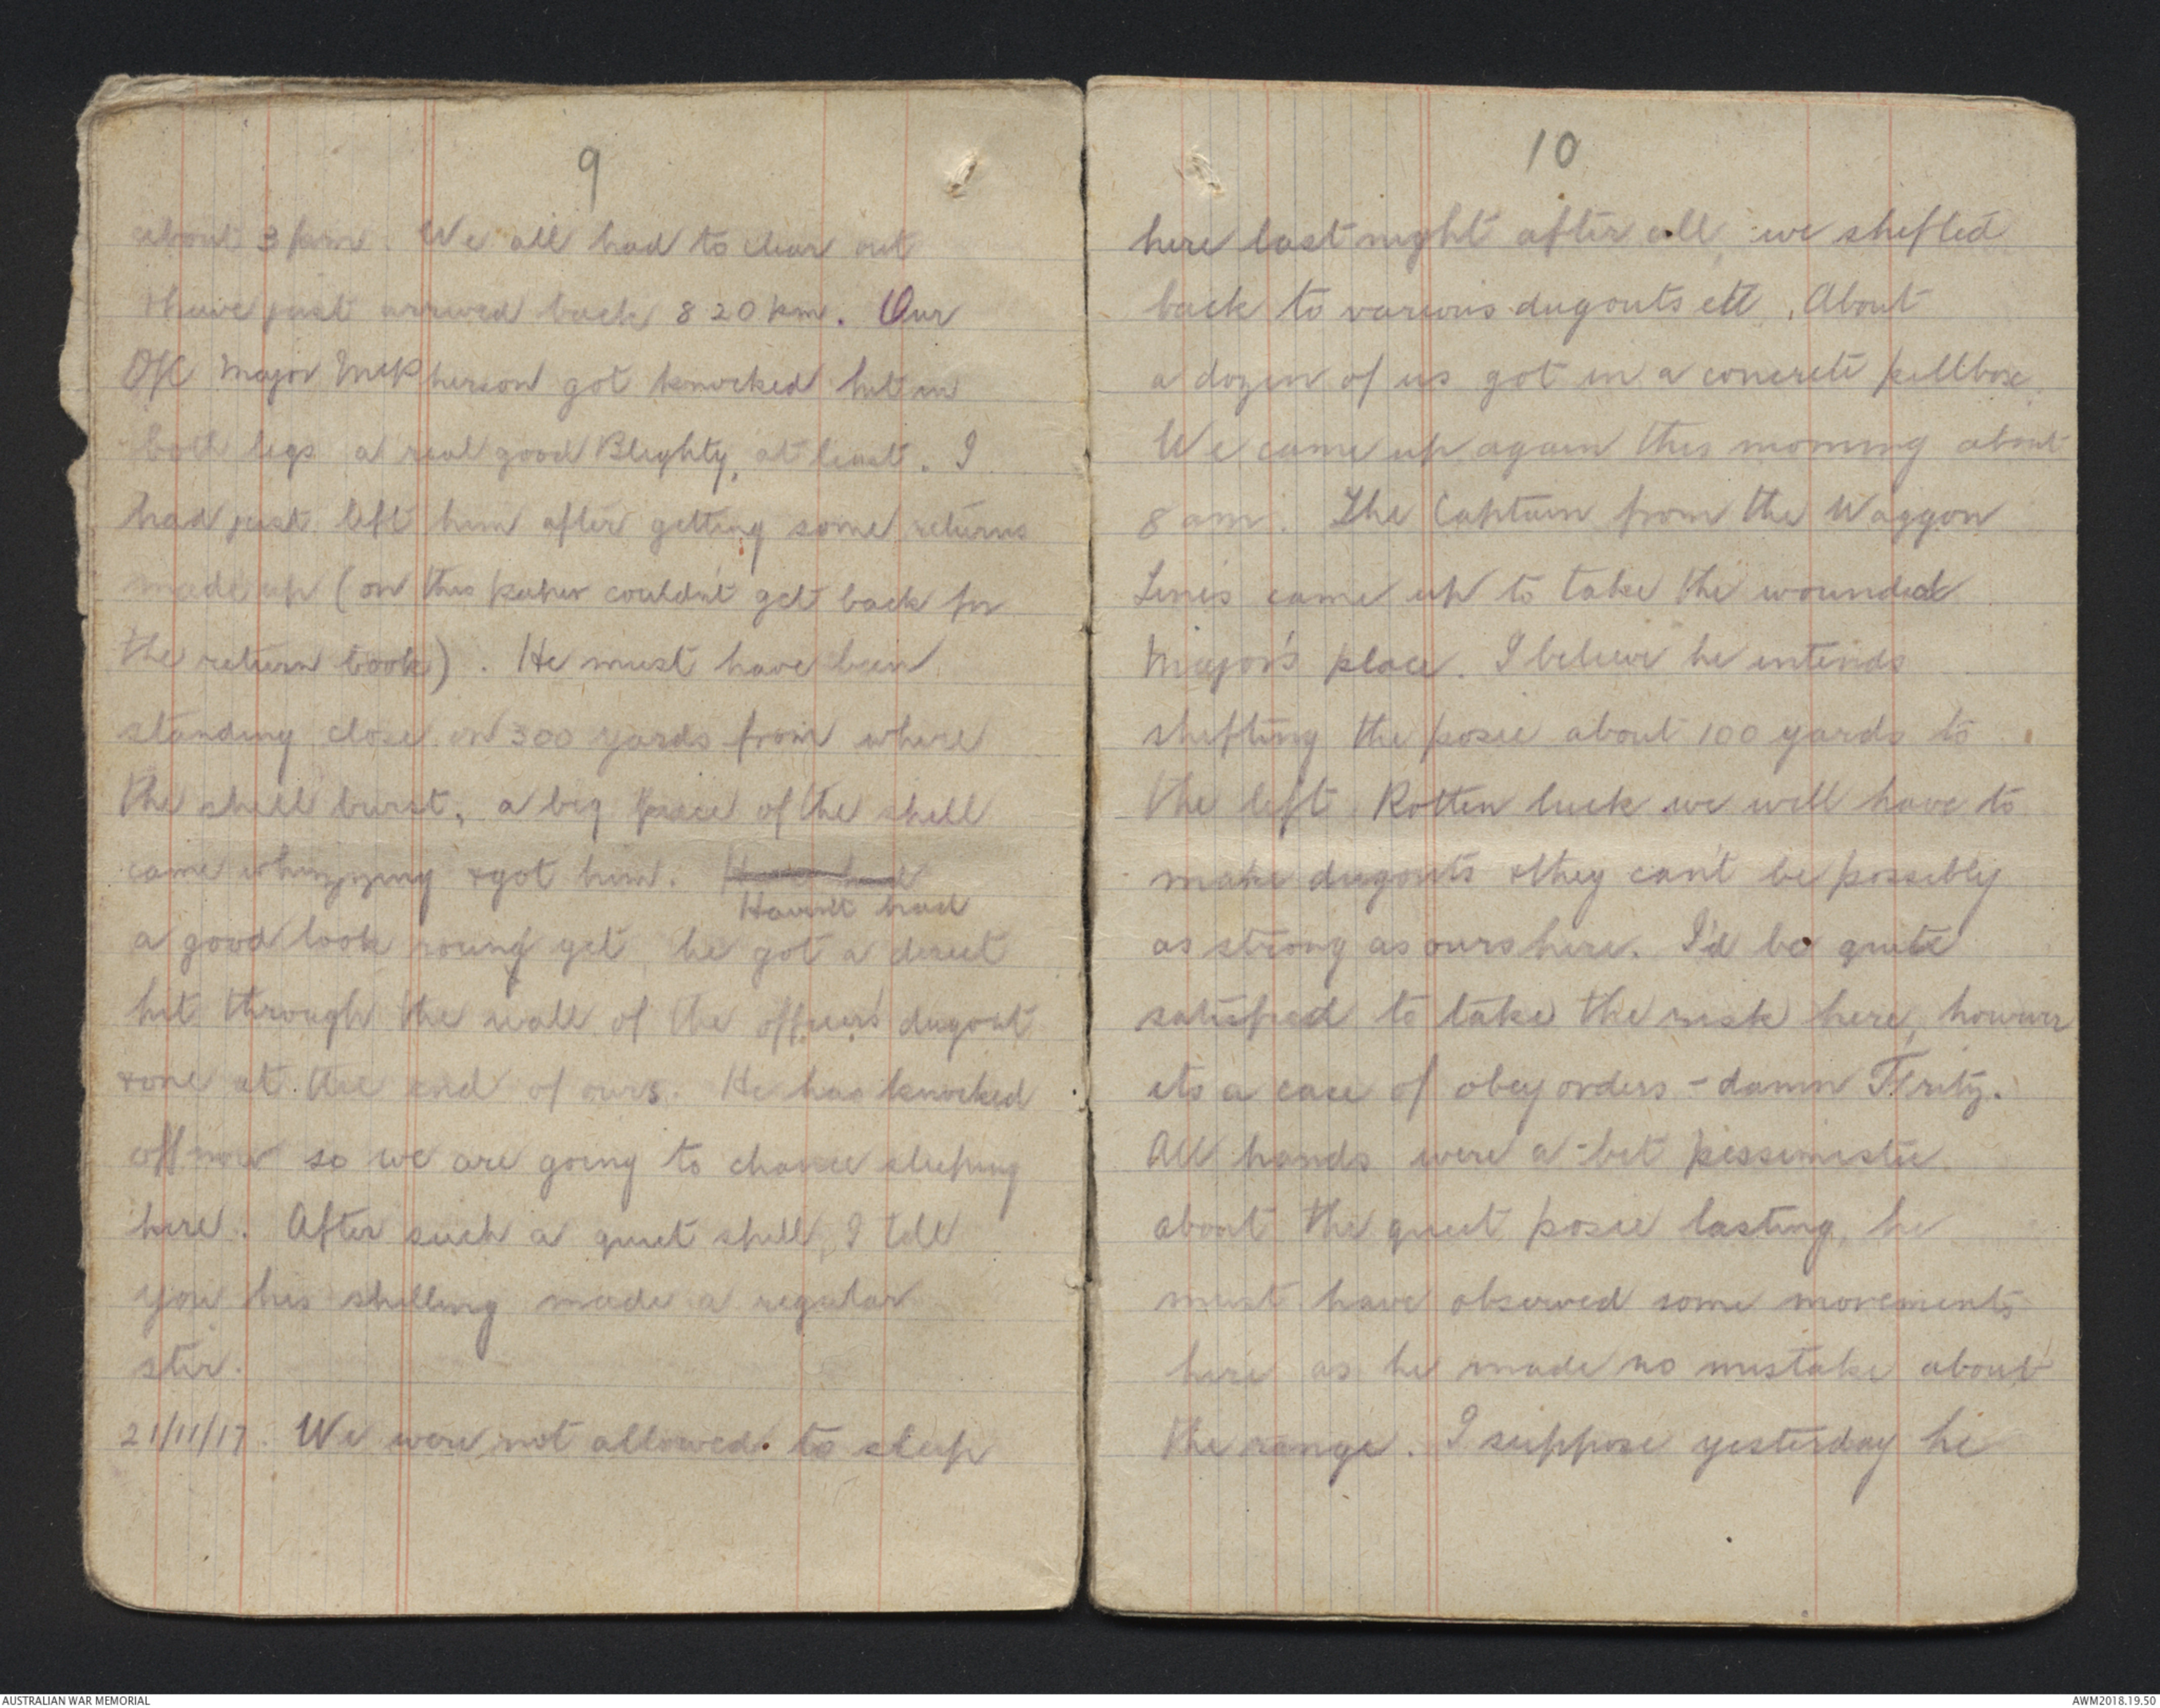 9
about 3 pm. We all had to clear out
& have just arrived back 8 20 pm. Our
O/C Major McPherson got knocked hit in
both legs a real good Blighty, at least. I
had just left him after getting some returns
made up (on this paper couldn't get back for
the return book). He must have been
standing close on 300 yards from where
the shell burst, a big piece of the shell
came whizzying & got him.
Havn't had
a good look round yet, he got a direct
hit through the wall of the officer's dugout
& one at the end of ours. He has knocked
off now so we are going to chance sleeping
here. After such a quiet spell, I tell
you his shelling made a regular
stir.
21/11/17. We were not allowed to sleep
10
here last night after all, we shifted
back to various dugouts etc. About
a dozen of us got in a concrete pillbox.
We came up again this morning about
8 am. The Captain from the Waggon
Lines came up to take the wounded
Major's place. I believe he intends
shifting the posie about 100 yards to
the left. Rotten luck we will have to
make dugouts & they can't be possibly
as strong as ours here. I'd be quite
satisfied to take the risk here, however
its a case of obey orders - damn Fritz.
All hands were a bit pessimistic
about the quiet posie lasting, he
must have observed some movements
here as he made no mistake about
the range. I suppose yesterday he
AUSTRALIAN WAR MEMORIAL
AWM2018.19.50